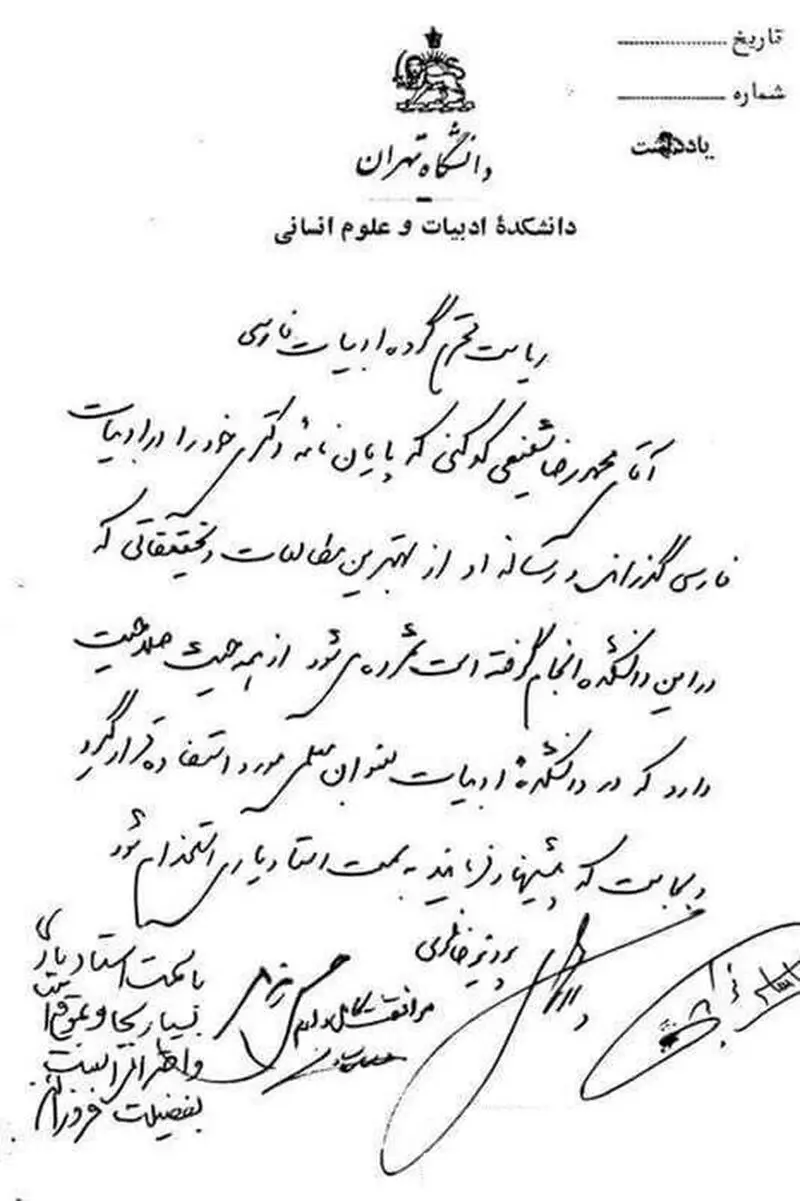 تاریخ ....................
شماره ....................
یادداشت
دانشگاه تهران
دانشکدهٔ ادبیات و علوم انسانی
ریاست محترم گروه ادبیات فارسی
آقای محمدرضا شفیعی کدکنی که پایان نامهٔ دکتری خود را در ادبیات
فارسی گذرانده و رساله او از بهترین مطالعات و تحقیقاتی که
در این دانشکده انجام گرفته است شمرده می شود از همه حیث صلاحیت
دارد که در دانشکدهٔ ادبیات بعنوان معلمی مورد استفاده قرار گیرد
و بجاست که پیشنهاد فرمایند به سمت استادیاری استخدام شود
پرویز خانلری
موافقت کامل دارم
با سمت استادیاری
بسیار بجا و بموقع است
و احترامی است
بفضیلت فروزانفر